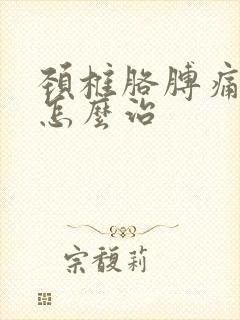 頚椎胳膊痛
怎麼治
宗馥莉